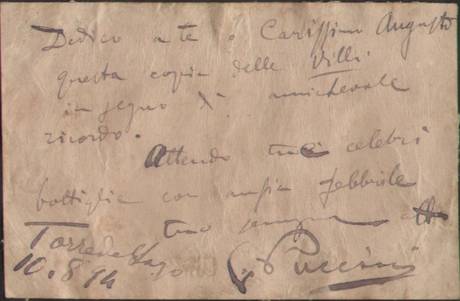 Dedico a te o Carissimo Augusto
questa copia delle Villi
in segno di amichevole
ricordo.
Attendo tue celebri
bottiglie con ansia febbrile
tuo sempre aff
Torre del Lago
10.8.94 G Puccini